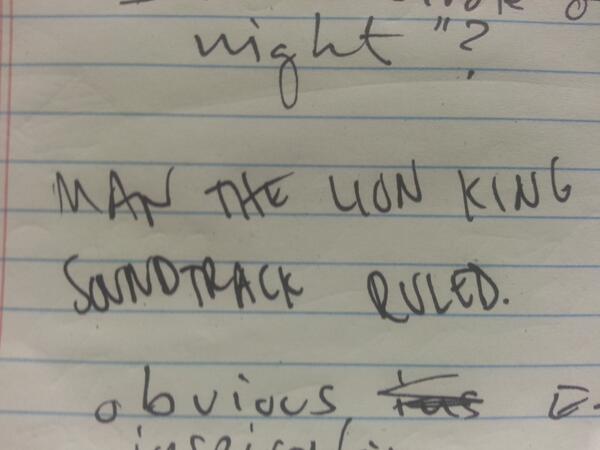 night"?
MAN THE LION KING
SOUNDTRACK RULED.
obvious